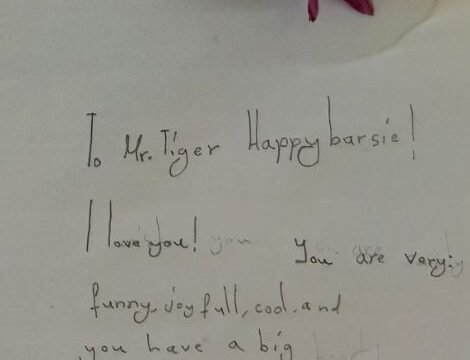 To Mr. Tiger Happy barsie!
I love you! you You are very:
funny, joyfull, cool, and
you have a big